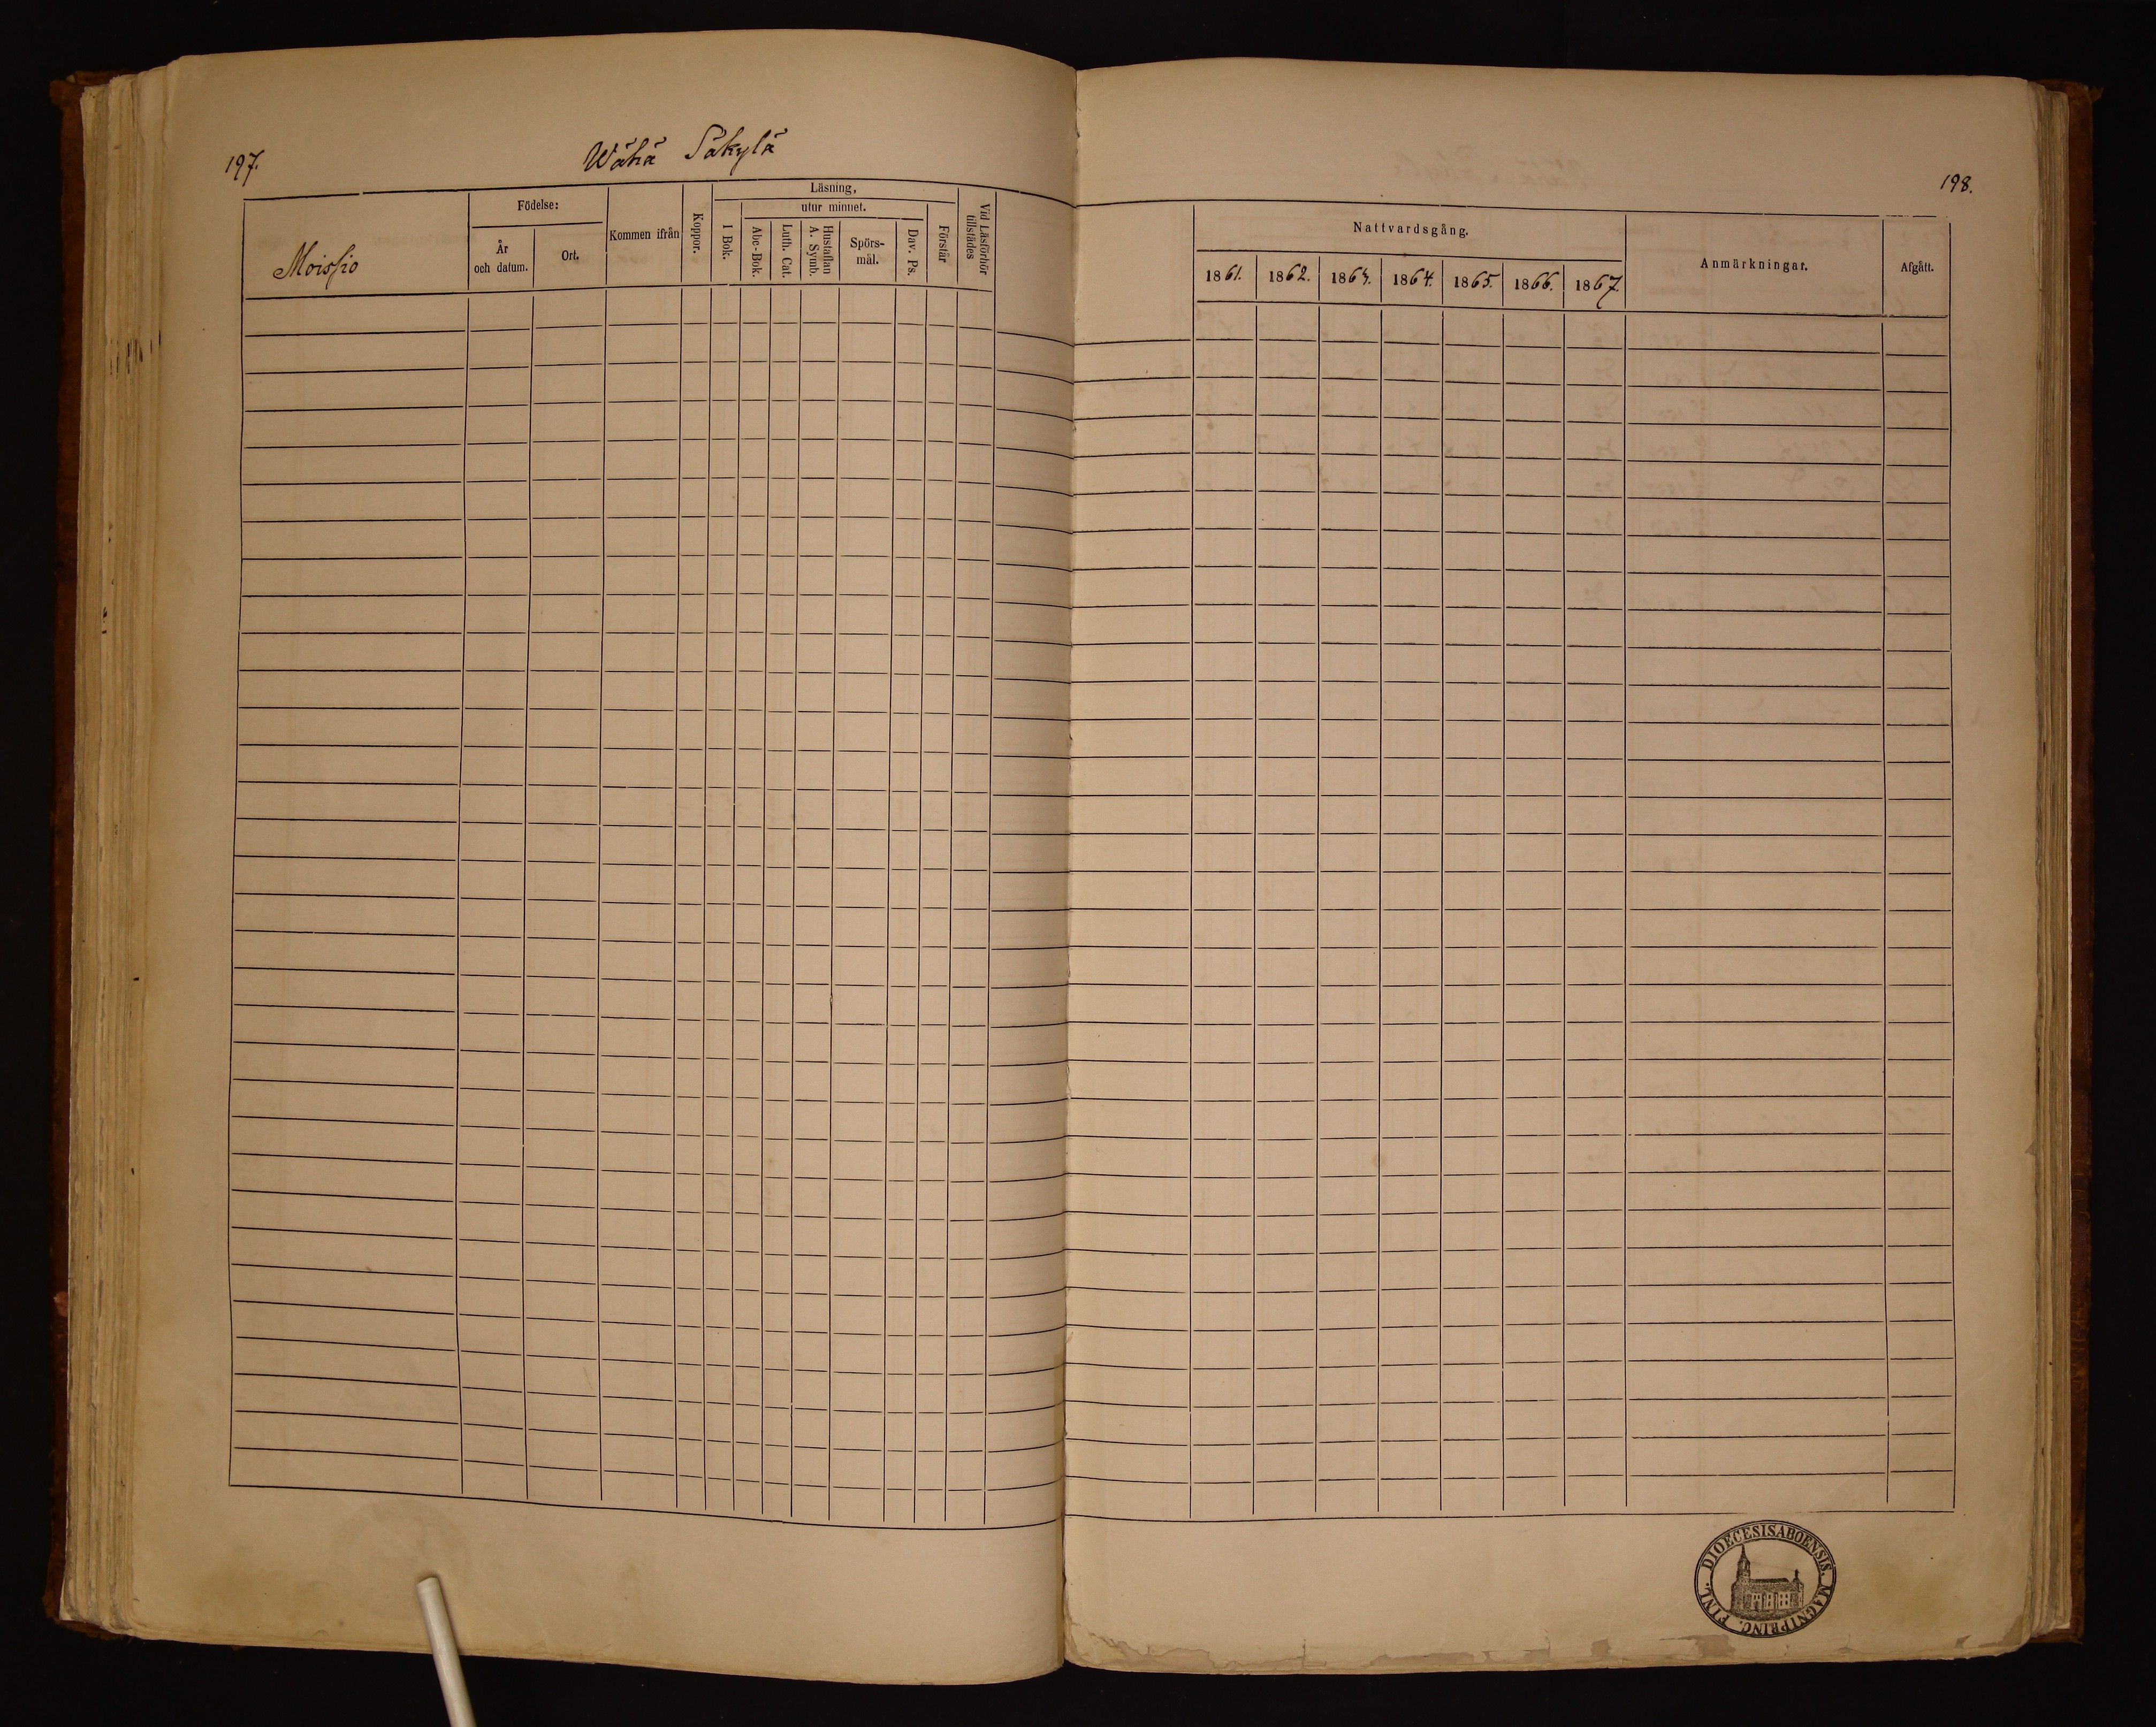 197.
Wähä Säkylä
Moisio
Födelse:
År
och datum.
Ort.
Kommen ifrån
Koppor.
Läsning,
I Bok.
utur minnet.
Abc-Bok.
Luth. Cat.
Hustaflan
A. Symb.
Spörs-
mål.
Dav. Ps.
Förstår
Vid Läsförhör
tillstädes
198.
Nattvardsgång.
1861. 1862. 1863. 1864. 1865. 1866. 1867.
Anmärkningar.
Afgått.
DIOECESISABOENSIS. MAGNIPRINC. FINL.